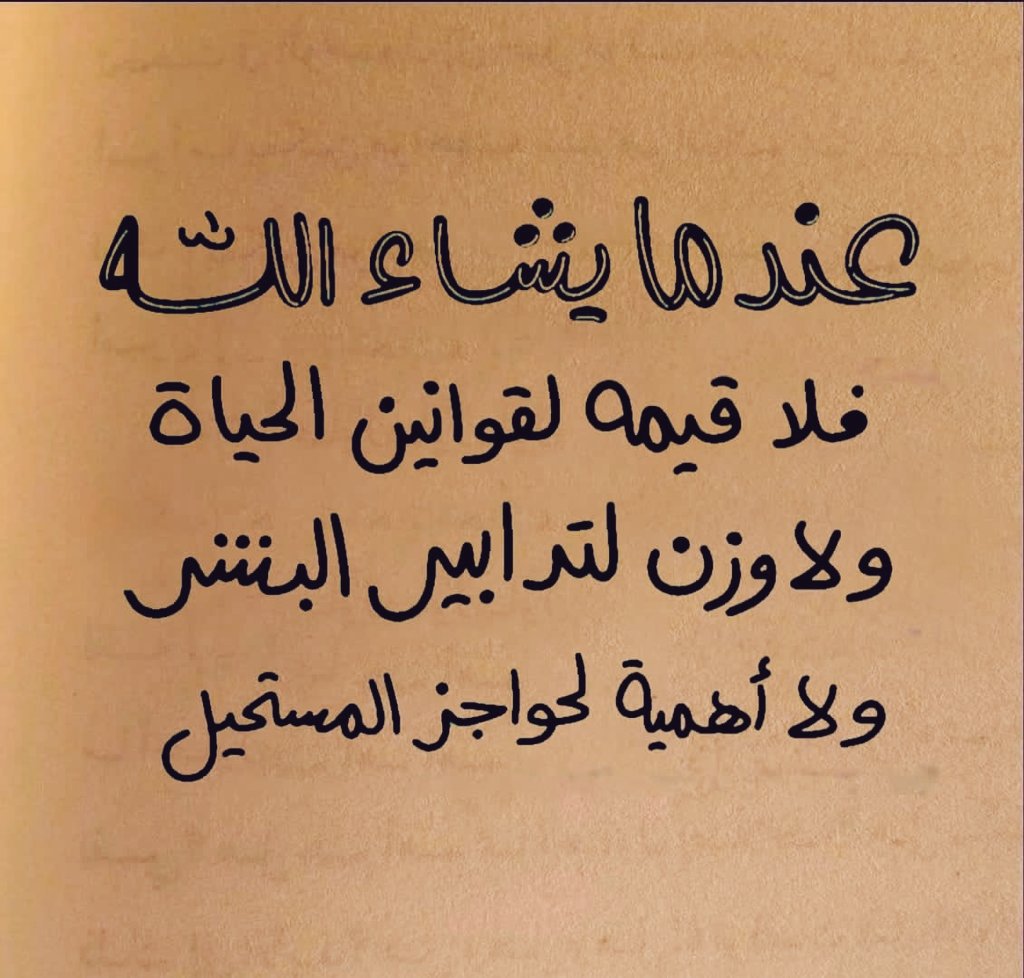 عندما يشاء الله
فلا قيمه لقوانين الحياة
ولا وزن لتدابير البشر
ولا أهمية لحواجز المستحيل